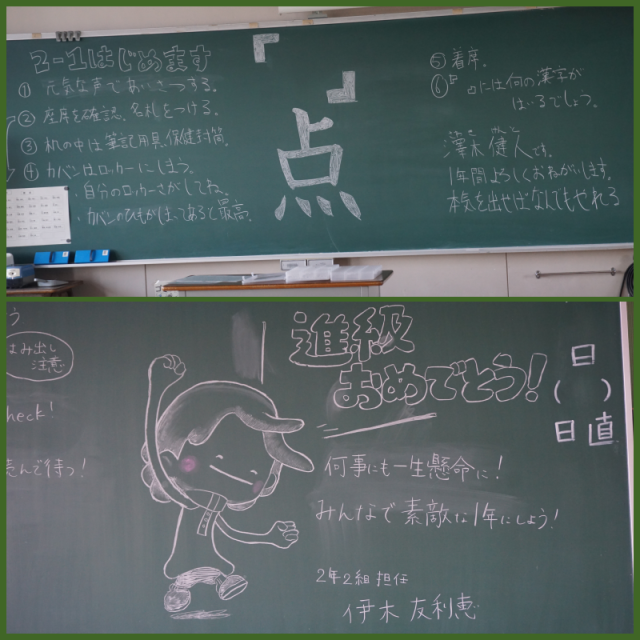 2-1はじめます
① 元気な声であいさつする。
② 座席を確認。名札をつける。
③ 机の中は筆記用具、保健封筒。
④ カバンはロッカーにしまう。
自分のロッカーさがしてね。
カバンのひもがしまってあると最高。
点
⑤ 着席。
⑥ には何の漢字が
はいるでしょう。
健人です。
1年間よろしくおねがいします。
本気を出せばなんでもやれる
はみ出し
注意
heck!
読んで待つ!
進級
おめでとう!
何事にも一生懸命に!
みんなで素敵な1年にしよう!
2年2組 担任
伊木 友利恵
日
( )
日直